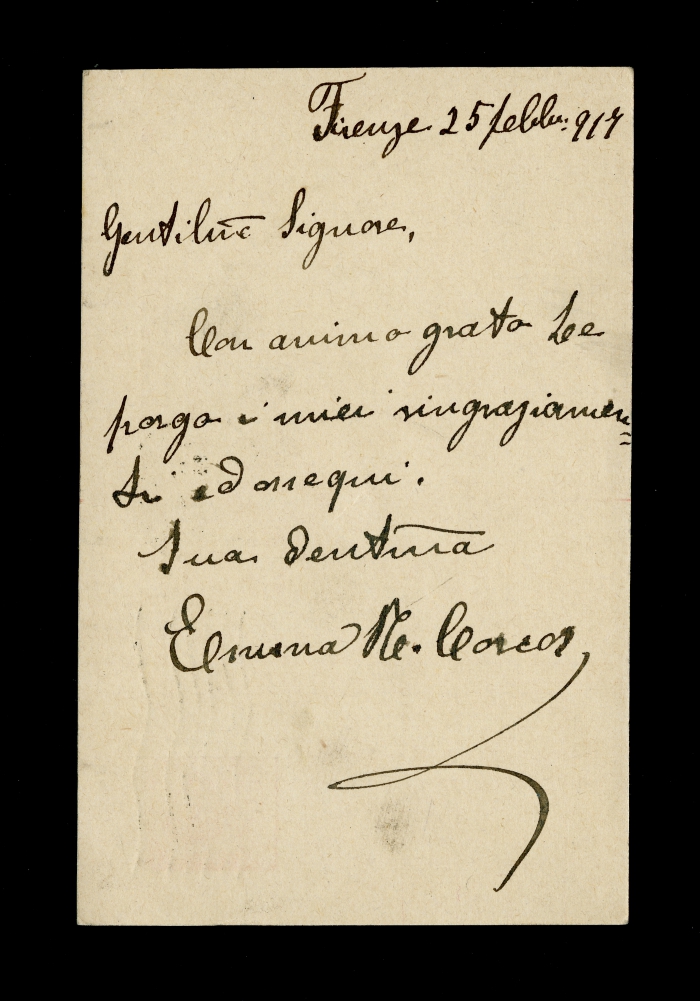 Firenze 25 febbr: 917
Gentilme Signore,
Con animo grato Le
porgo i miei ringraziamen=
ti ed ossequi.
Sua devotma
Emma R. Corcos